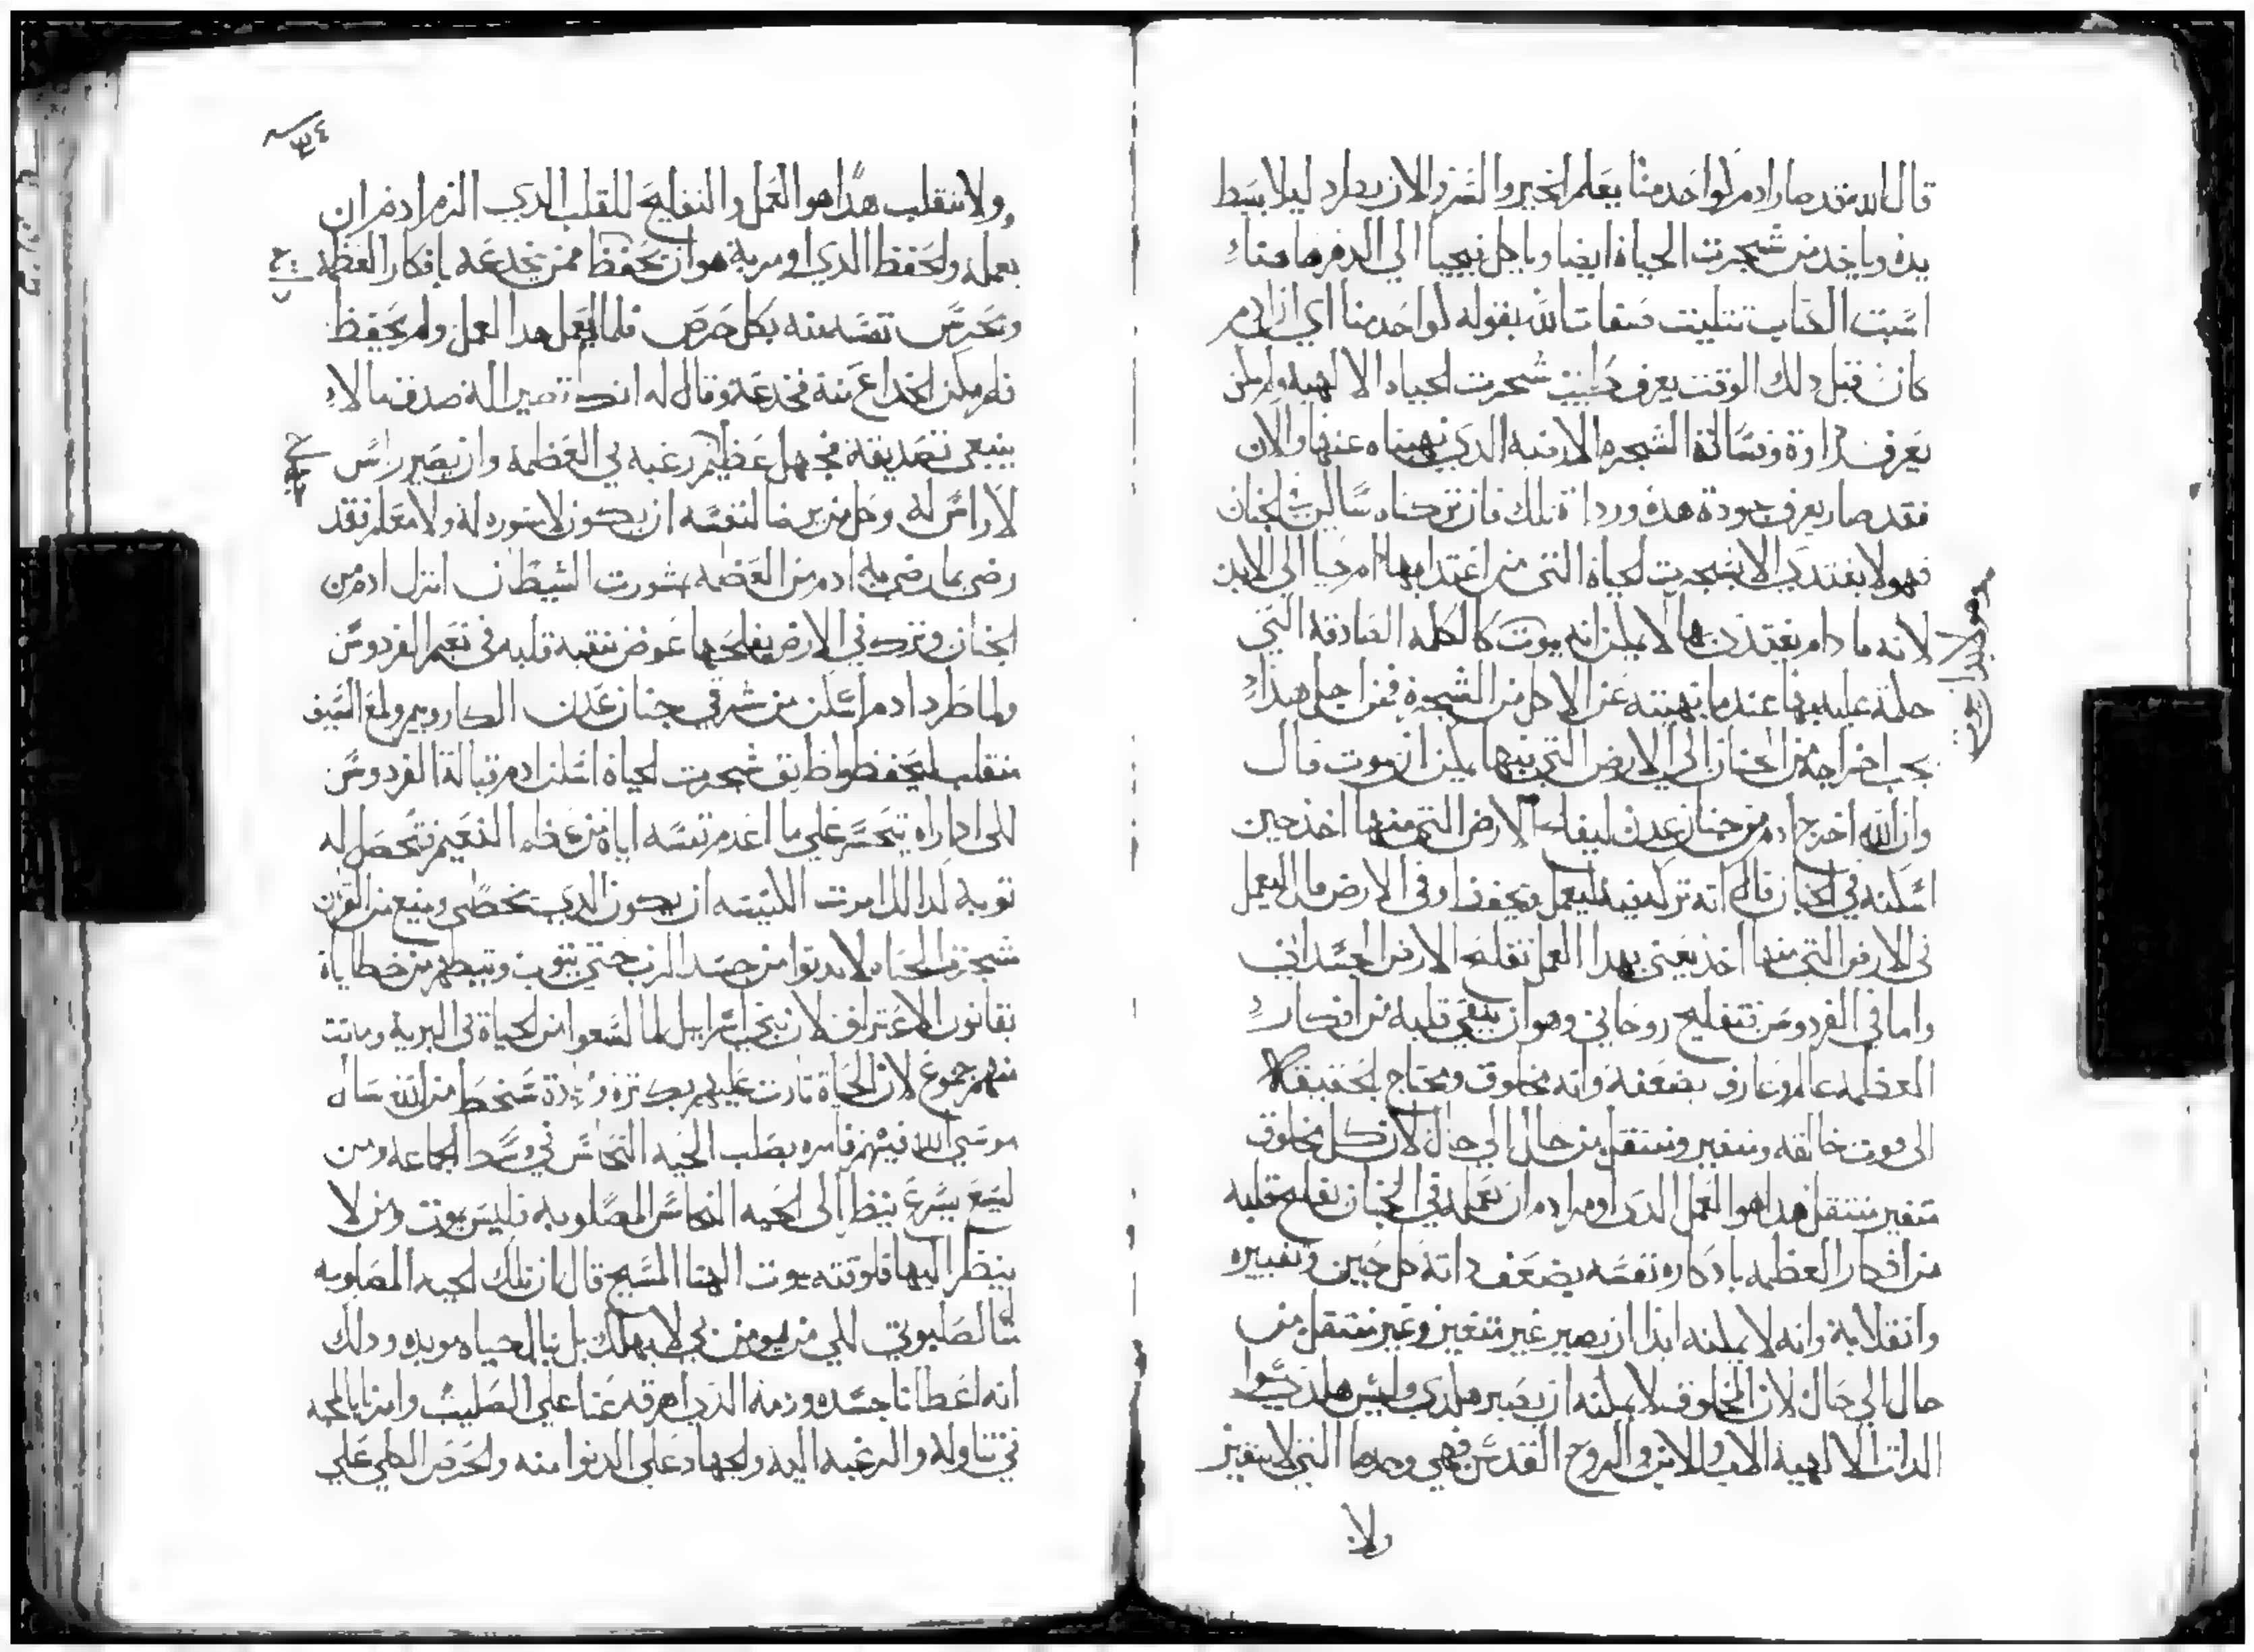 قال الله فقد صار ادم كواحد منا يعلم الخير والشر والان يطرد ليلا يبسط
يده وياخد من شجرت الحياة ايضا وياكل فيحيا الي الدهر هاهناك
اتبت الكتاب تتليت صفات الله بقوله كواحد منا اي ان ادم
كان قبل دلك الوقت يعرف طيبت شجرت الحياه الالهيه ولم يكن
يعرف مرارة وفسالة الشجره الارضيه الدي نهيناه عنها والان
فقد صار يعرف جودة هده ورداة تلك فان تركناه ساكن الجنان
فهو لا يغتدي الا بشجرت الحياة التي من اغتدا بها يحيا الي الابد
لانه ما دام يغتدي بها لا يمكن انه يموت كالكلمه الصادقه التي
حكمة عليه بها عندما نهيته عن الاكل من الشجرة فمن اجل هدا
يجب اخراجه من الجنان الي الارض التي فيها يمكن ان يموت قال
وان الله اخرج ادم من جنان عدن ليفلح الارض التي منها اخذ حين
اسكنه في الجنان قال انه تركه فيه ليعمل ويحفظ وفي الارض قال ليعمل
في الارض التي منها اخذ يعني بهدا العمل تفلحة الارض الجسداني
واما في الفردوس فتفليح روحاني وهو ان ينقي قلبه من افكار
العظمه عالم وعارف بضعفه وانه مخلوق ومحتاج
الى قوت خالقه ومتغير ومنتقل من حال الي حال لان كل مخلوق
متغير منتقل هدا هو العمل الدي اومر ادم ان يعمله في الجنان يفلح قلبه
من افكار العظمه بادكاره نفسه بضعف داته كل حين وتغييره
وانقلابه وانه لا يمكنه ابدا ان يصير غير متغير وغير منتقل من
حال الي حال لان المخلوق لا يمكنه ان يصير هكدي وليس هكدي سوا
الدات الالهية الاب والابن والروح القدس فهي وحدها التي لا تتغير
ولا
وهو هكدا يموت
٣٤
ولا تنقلب هدا هو العمل والتفليح للقلب الدي الزم ادم ان
يعمله والحفظ الدي اومر به هو ان يحفظ ممن يخدعه بافكار العظمه
ويحرس نفسه منه بكل حرص فلما لم يعمل هدا العمل ولم يحفظ
داته من الخداع منه فخدعه وقال له انك تصير اله صدق ما لا
ينبغي تصديقه فجهل عظيم رغبه في العظمة وان يصير راس
لا راس له وكل من يرضا لنفسه ان يكون لا مشوره له ولا معلم فقد
رضى بما رضي به ادم من العظمه بشورت الشيطان انزل ادم من
الجنان وترك في الارض يفلحها عوض تنقية قلبه في نعيم الفردوس
ولما طرد ادم اسكن من شرقي جنان عدن الكاروبيم ولمع السيف
متقلب ليحفظوا طريق شجرت الحياة اسكن ادم قبالة الفردوس
لكي ادا راه يتحسر علي ما اعدم نفسه اياه من عظم النعيم فتحصل له
توبه لدالك امرت الكنيسه ان يكون الدي يخطي ويمنع من القربان
شجرة الحياه لا يدنوا من جسد الرب حتي يتوب ويتطهر من خطاياة
بقانون الاعتراف لان بني اسراييل لما لسعوا من الحياة في البرية وماتت
منهم جموع لان الحياة تارت عليهم بكترة سخط من الله سال
موسي الله فيهم فامره بصلب الحيه النحاس في وسط الجماعه ومن
لسع يسرع ينظر الي الحيه النحاس المصلوبه فليس يموت ومن لا
ينظر اليها فلوقته يموت الهنا المسيح قال ان تلك الحيه المصلوبه
متال صلبوتي لكي من يومن بي لا يهلك بل ينال حياه موبده ودلك
انه اعطانا جسده ودمه الدي اهرقه عنا علي الصليب وامرنا بالمحبه
في تناوله والرغبه اليه والجهاد علي الدنوا منه والحرص الكلي علي